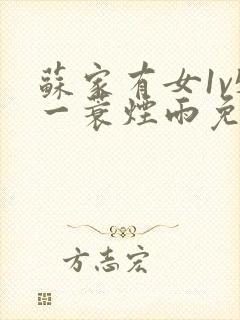 蘇家有女1v
一蓑煙雨免
方志宏